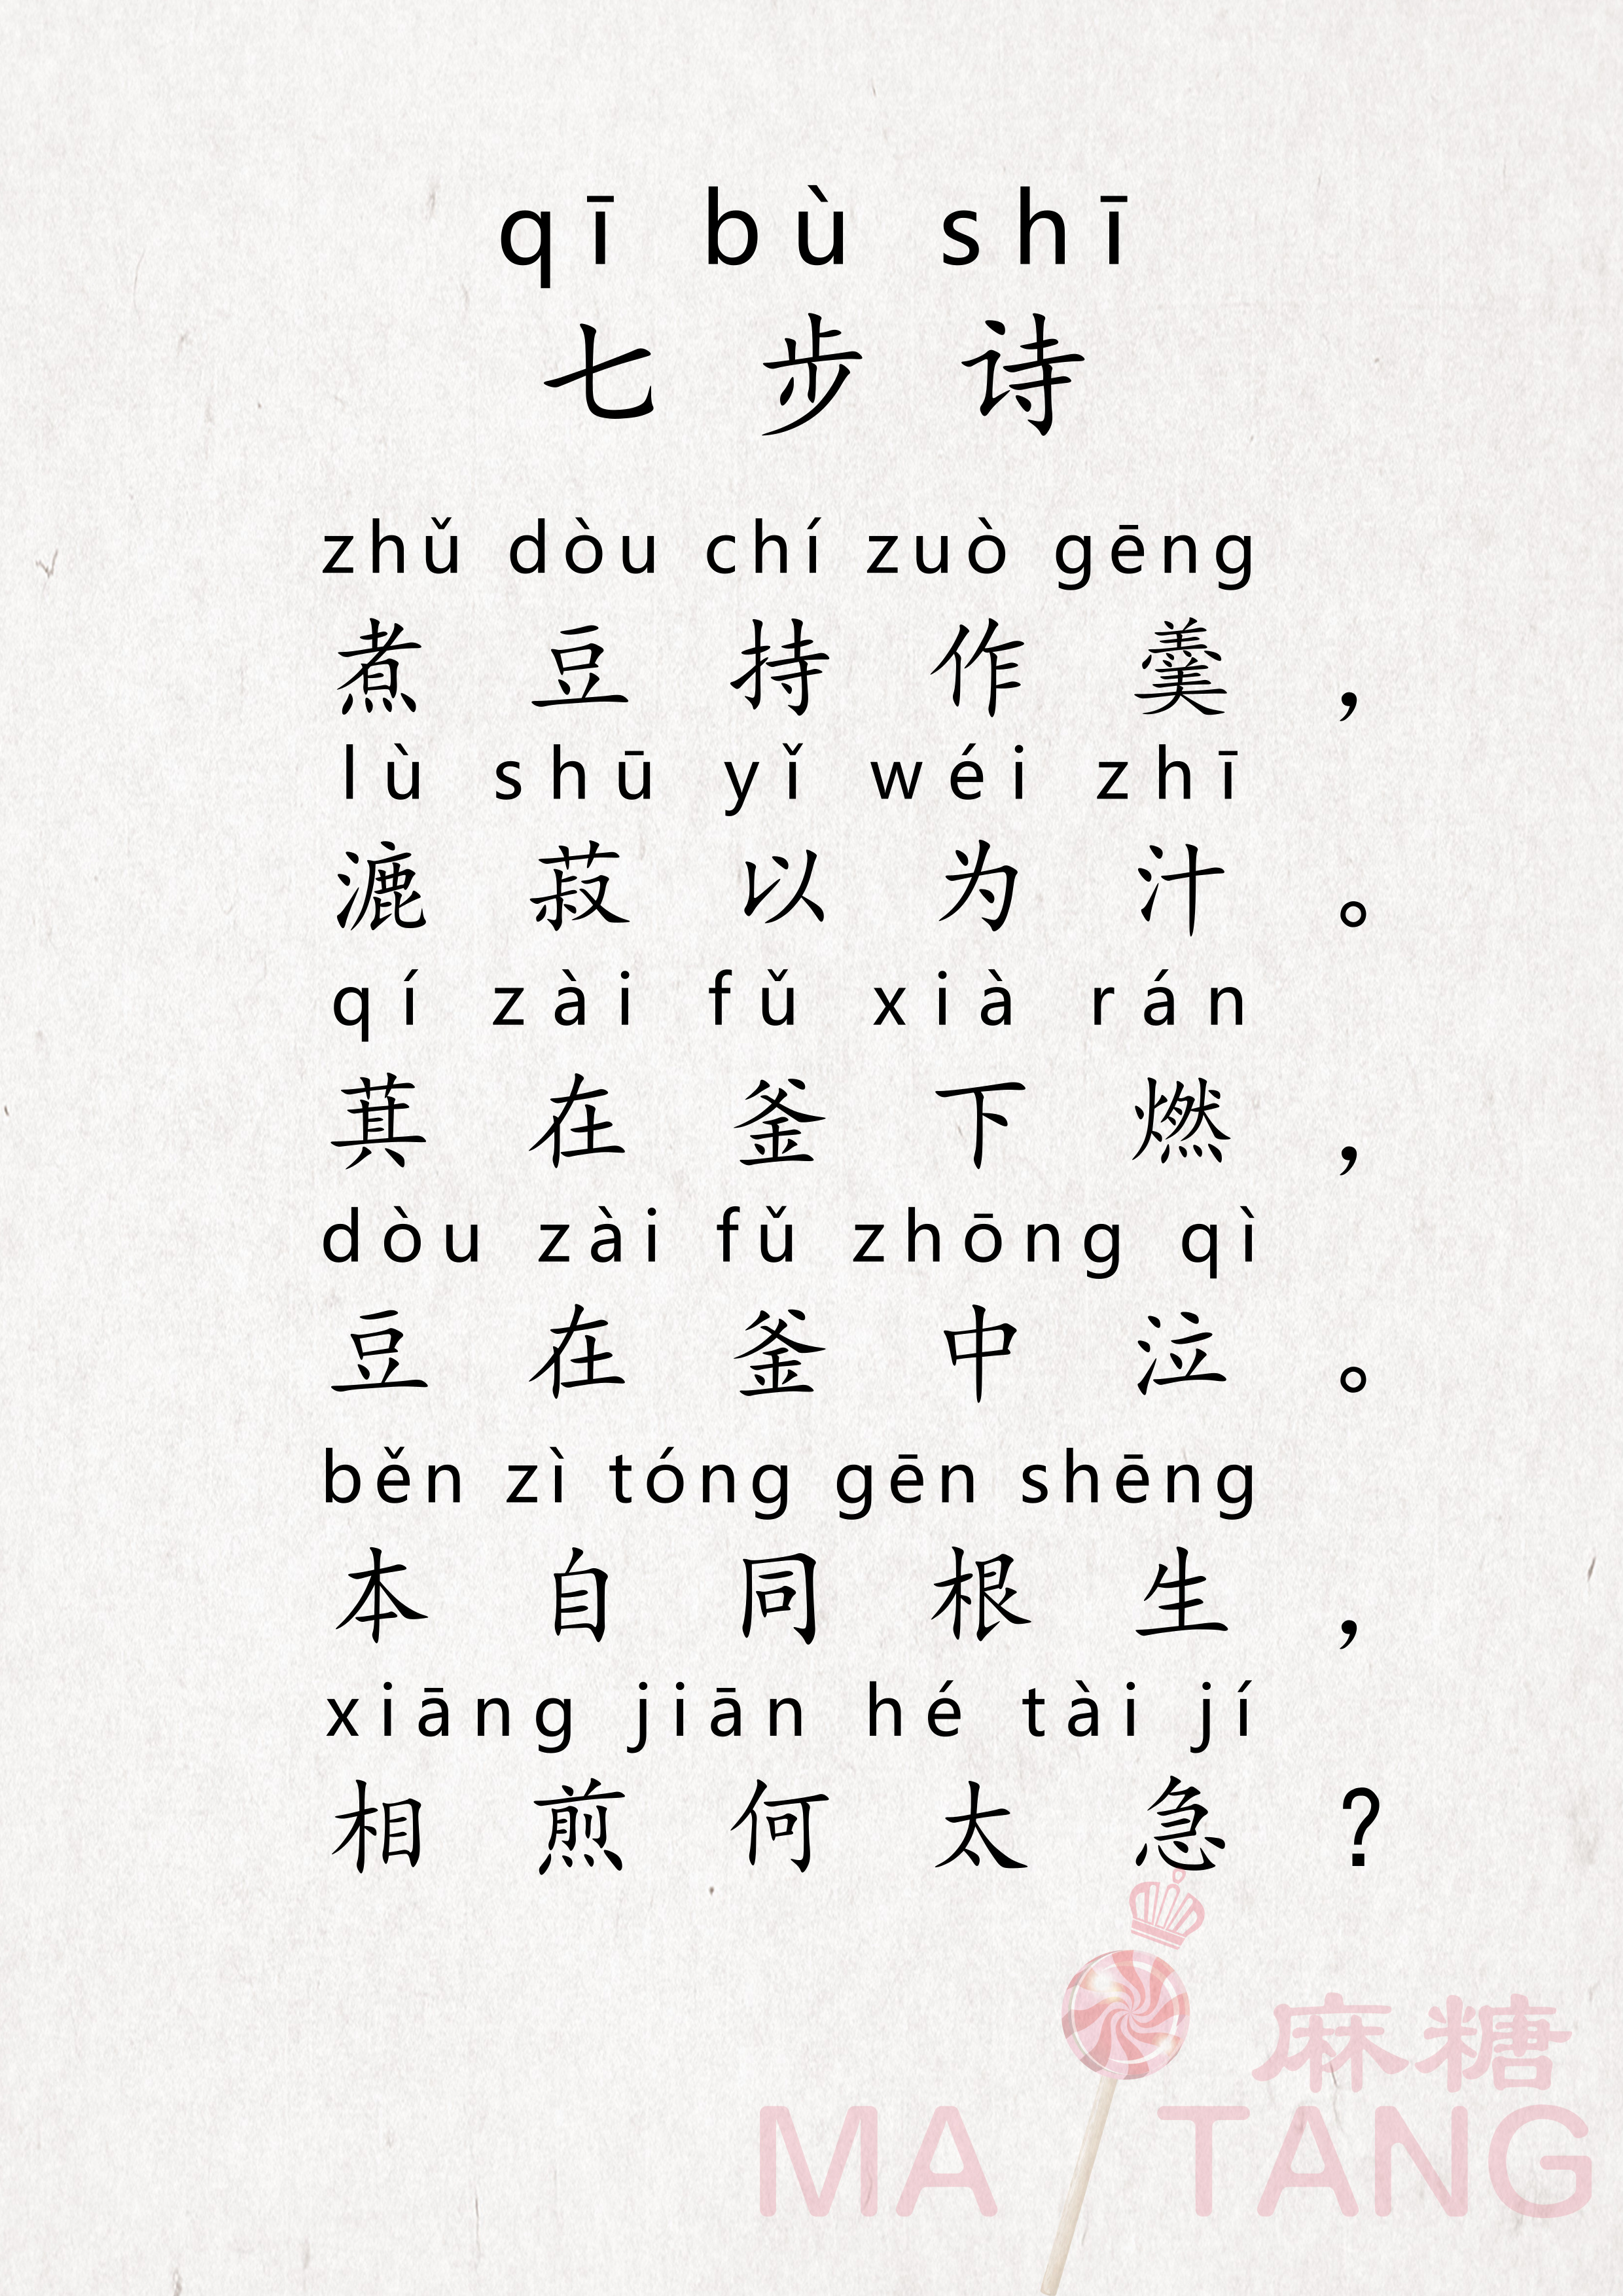 qī bù shī
七步诗
zhǔ dòu chí zuò gēng
煮豆持作羹，
lù shū yǐ wéi zhī
漉菽以为汁。
qí zài fǔ xià rán
萁在釜下燃，
dòu zài fǔ zhōng qì
豆在釜中泣。
běn zì tóng gēn shēng
本自同根生，
xiāng jiān hé tài jí
相煎何太急？
麻糖
MA TANG